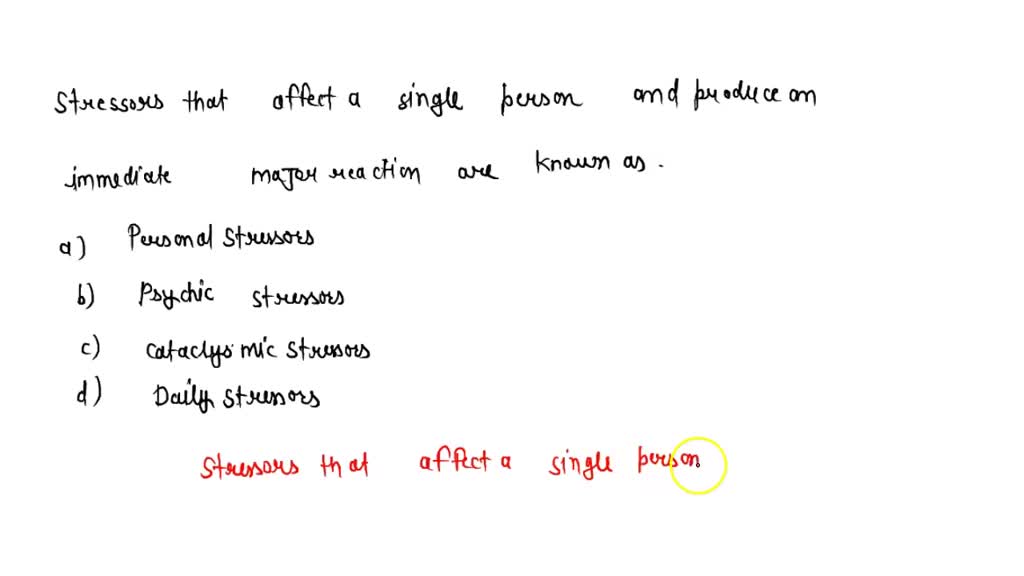 Stressors that affect a single person and produce an
immediate major reaction are known as.
a) Personal stressors
b) Psychic stressors
c) cataclysmic stressors
d) Daily stressors
stressors that affect a single person